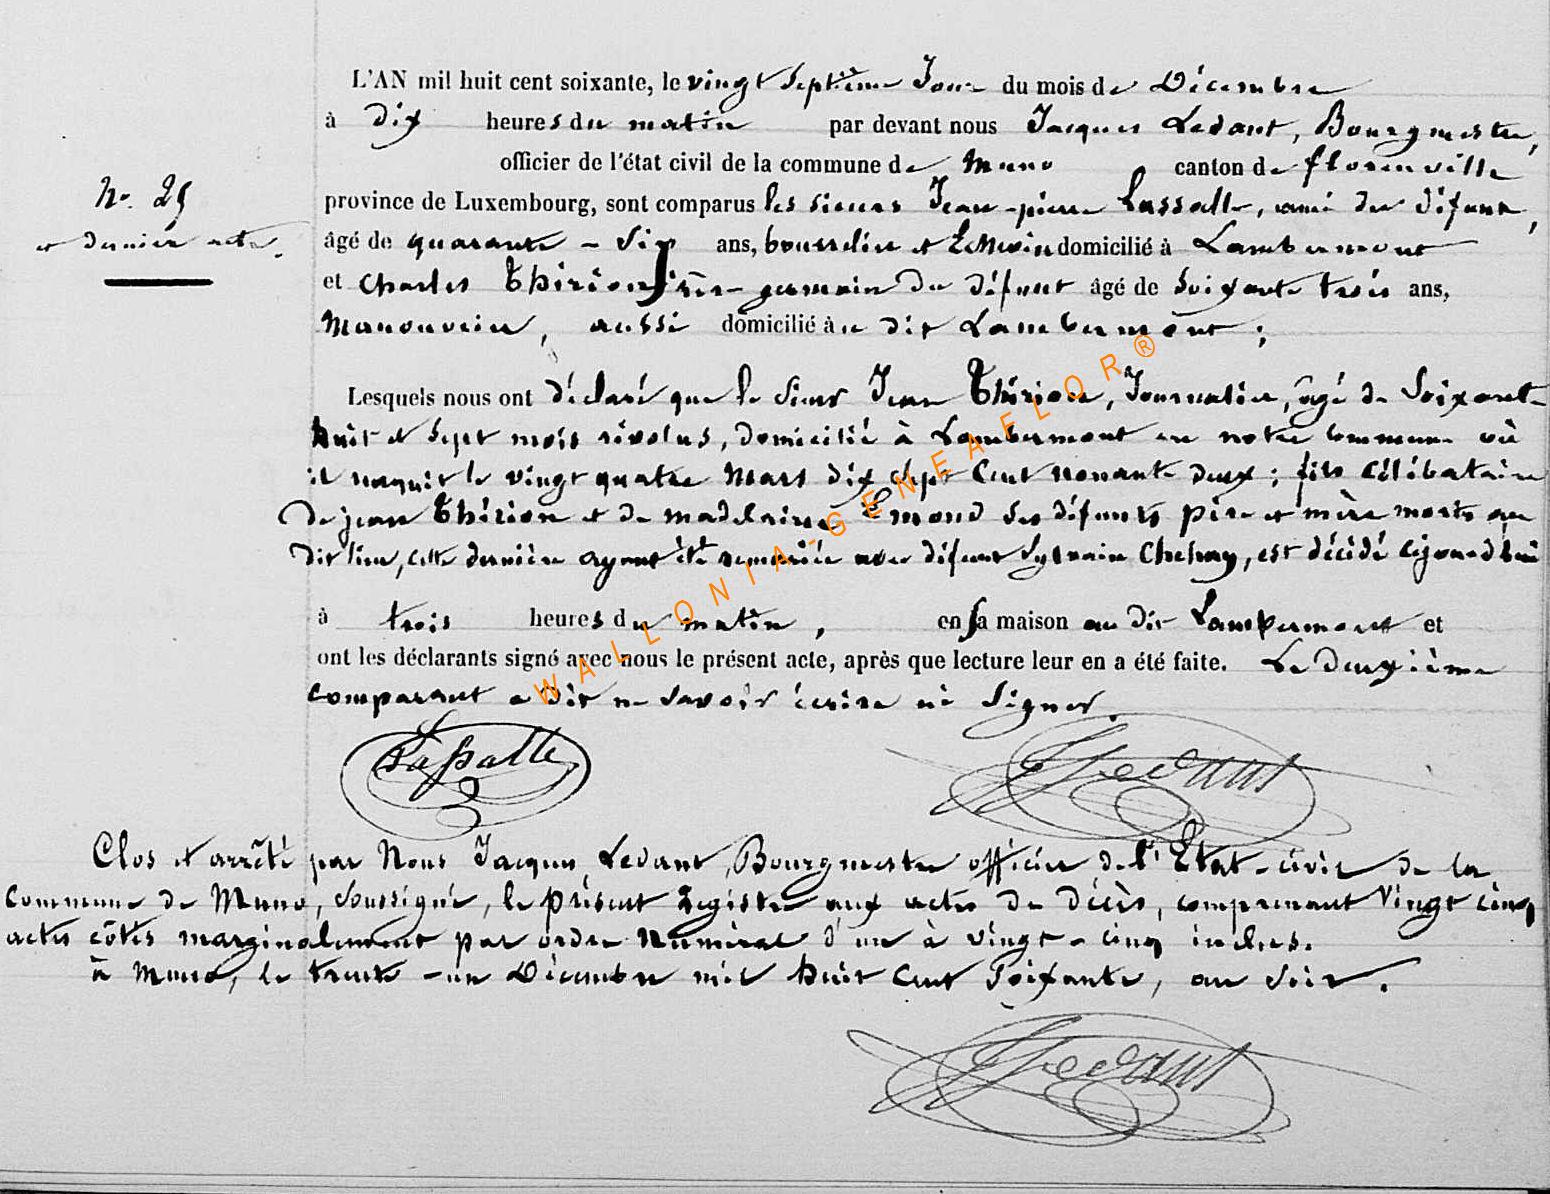 L'AN mil huit cent soixante, le vingt septième Jour du mois de Décembre
à dix heures du matin par devant nous Jacques Ledant, Bourgmestre,
officier de l'état civil de la commune de Muno canton de florenville
N°. 25
et dernier acte.
province de Luxembourg, sont comparus les sieurs Jean-pierre Lassalle, ami du défunt,
âgé de quarante-six ans, domicilié à Lambermont
et Charles Thirion frère germain du défunt âgé de soixante trois ans,
Manouvrier, aussi domicilié au dit Lambermont;
Lesquels nous ont déclaré que le sieur Jean Thirion, Journalier, âgé de Soixante
huit et sept mois révolus, domicilié à Lambermont en notre commune où
il naquit le vingt quatre Mars dix sept Cent nonante deux; fils célibataire
de jean Thirion et de madelaine Emond ses défunts père et mère morts au
dit lieu, cette dernière ayant été remariée avec défunt Sylvain Chehay, est décédé aujourd'hui
à trois heures du matin, en sa maison au dit Lambermont et
ont les déclarants signé avec nous le présent acte, après que lecture leur en a été faite. Le deuxième
comparant a dit ne savoir écrire ni signer.
Lassalle JLedant
Clos et arrêté par Nous Jacques Ledant, Bourgmestre officier de l'Etat-civil de la
commune de Muno, soussigné, le présent Registre aux actes de décès, comprenant Vingt cinq
actes côtés marginalement par ordre Numéral d'un à vingt-cinq inclus.
à Muno, le trente-un Décembre mil huit Cent Soixante, au soir.
JLedant
WALLONIA-GENEAFLOR®